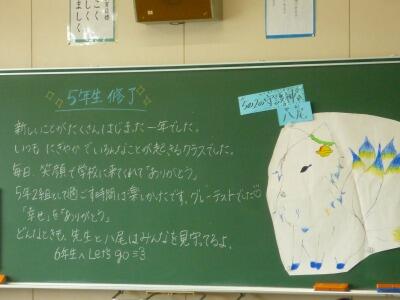 5年生 修了
新しいことがたくさんはじまった一年でした。
いつも にぎやかで いろんなことが起きるクラスでした。
毎日、笑顔で学校に来てくれて"ありがとう"。
5年2組として過ごす時間は楽しかったです。グレーテストでした
「幸せ」を"ありがとう"
どんなときも、先生と八尾はみんなを見守ってるよ。
6年生へ Let's go
5の2の守護神
八尾